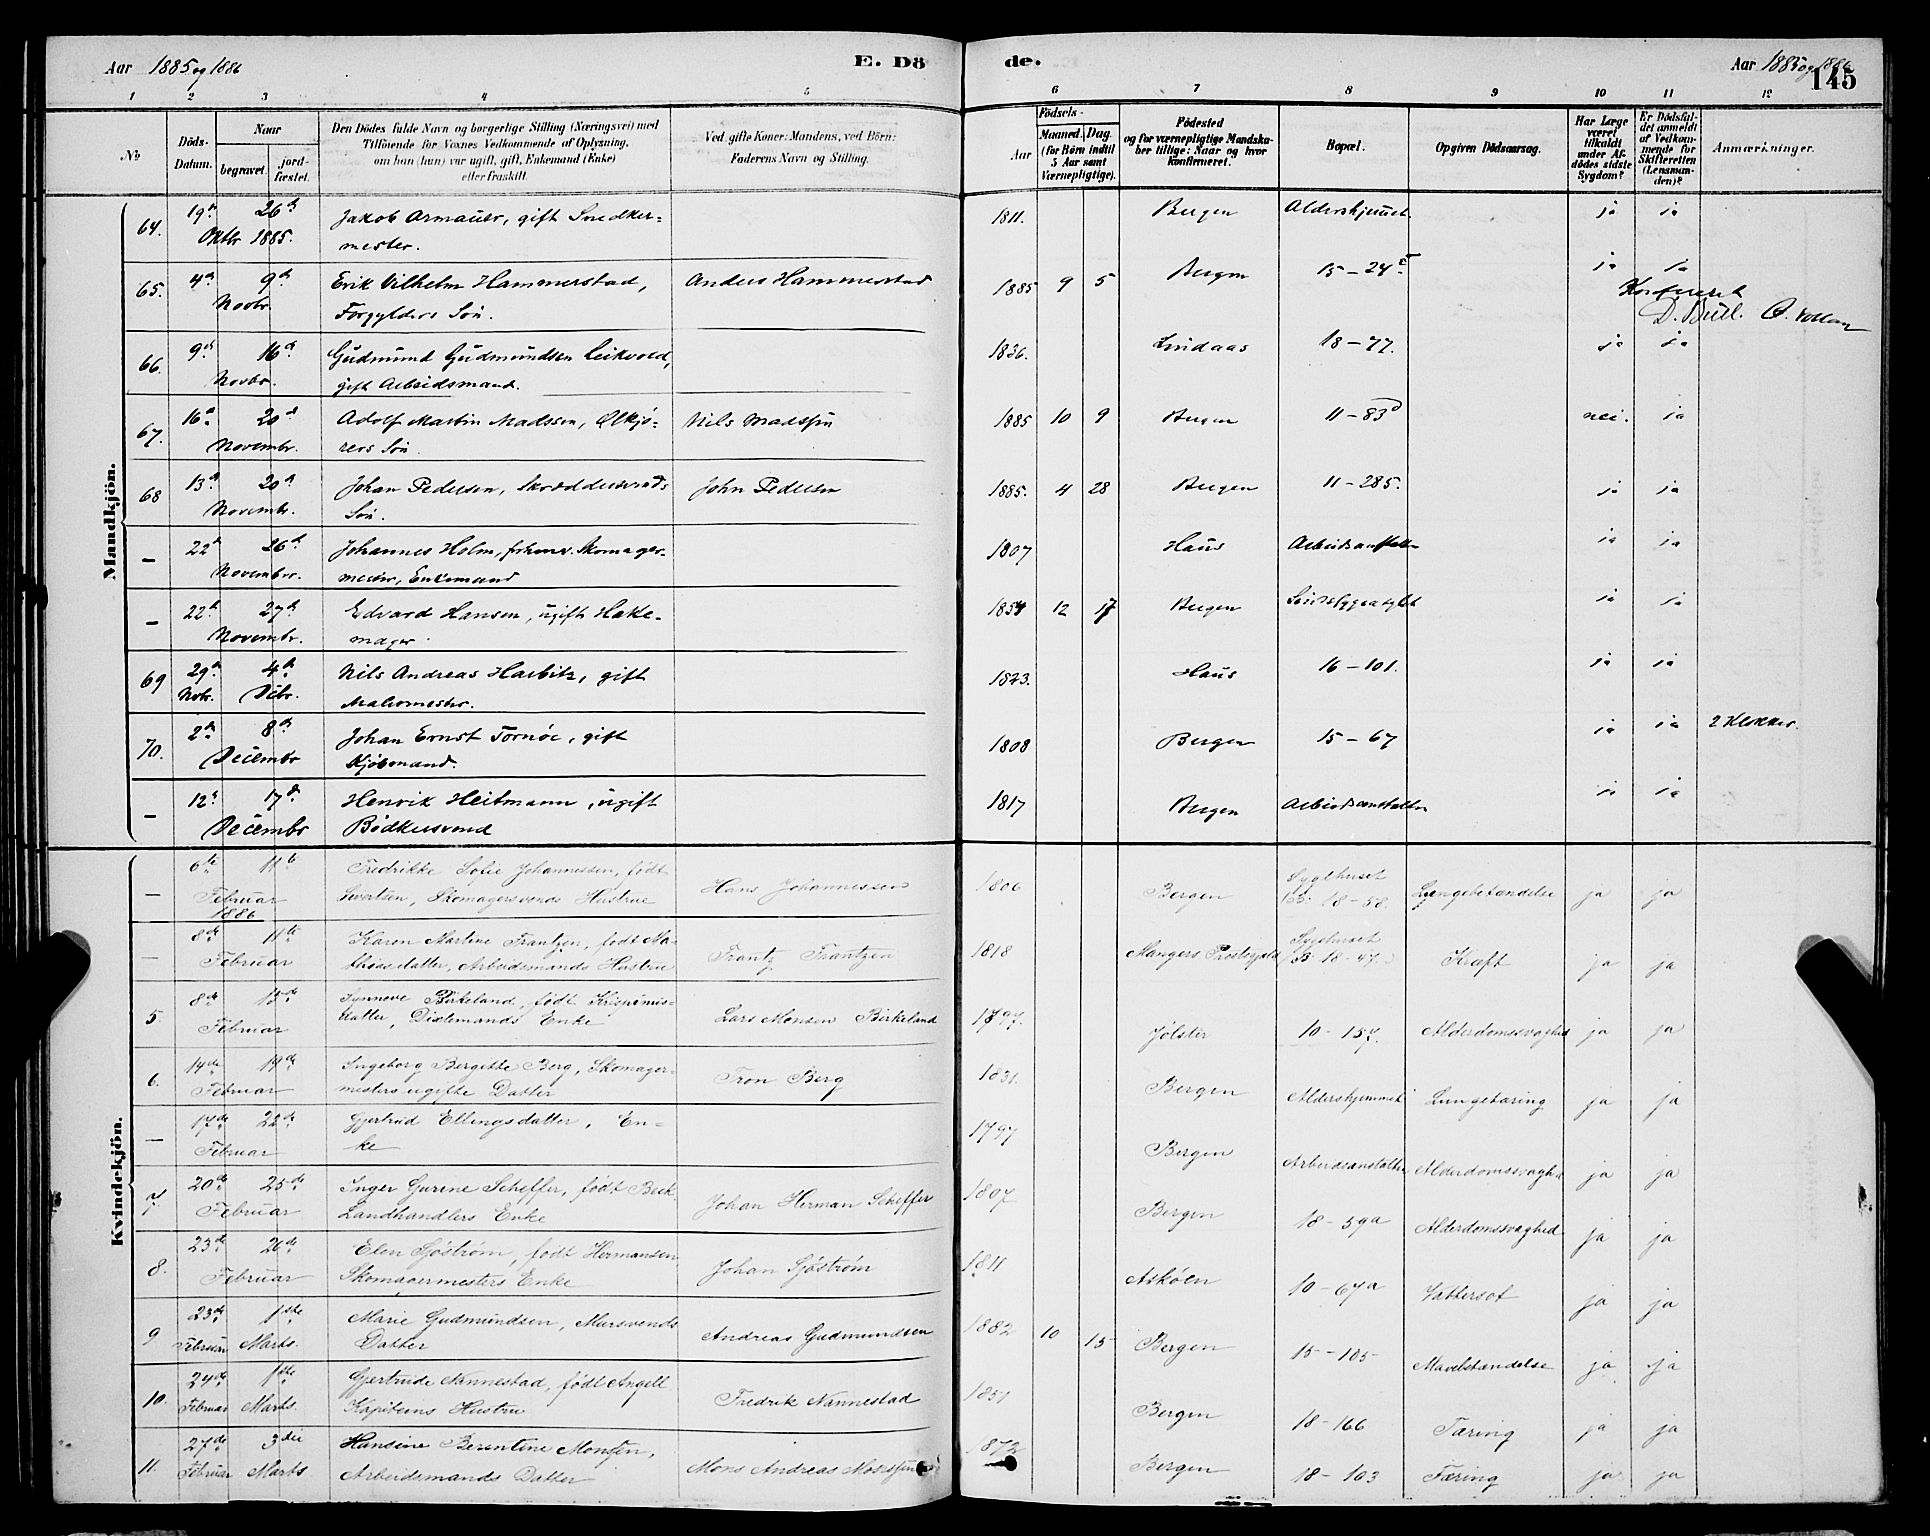 Aar 1885 og 1886 E. Dö de. Aar 1885 og 1886 145
1 2 3 4 5 6 7 8 9 10 11 12
No Döds-Datum. Naar begravet. jordfæstet. Den Dödes fulde Navn og borgerlige Stilling (Næringsvei) med Tilföiende for Voxnes Vedkommende af Oplysning, om han (hun) var ugift, gift, Enkemand (Enke) eller fraskilt. Ved gifte Koner: Mandens, ved Börn: Faderens Navn og Stilling. Födsels- Aar Maaned. Dag. (for Börn indtil 5 Aar samt Værnepligtige). Födested og for værnepligtige Mandskaber tillige: Naar og hvor konfirmeret. Bopæl. Opgiven Dödsaarsag. Har Læge været tilkaldt under Afdödes sidste Sygdom? Er Dödsfaldet anmeldt af Vedkommende for Skifteretten (Lensmanden)? Anmærkninger.
Mandkjön.
64. 19de 26de Jakob Armauer, gift Snedker- 1811. Bergen Aldershjemmet ja ja
Oktbr 1885. mester.
65. 4de 9de Erik Vilhelm Hammerstad, Anders Hammerstad 1885 9 5 Bergen 15-24c ja ja
Novbr. Forgylders Søn. Konfereret
D. Bull.
66. 9de 16de Gudmund Gudmundsen Leikvold, 1836. Lindaas 18-77. ja ja
Novbr. gift Arbeidsmand.
67. 16de 20de Adolf Martin Madssen, Ølkjø- Nils Madssen 1885 10 9 Bergen 11-83d nei. ja
Novembr. rers Søn.
68 13de 20de Johan Pedersen, Skræddersvends John Pedersen 1885. 4 28 Bergen 11-285. ja ja
Novembr. Søn.
— 22de 26de Johannes Holm, forhenv. Skomager- 1807 Haus Arbeidsanstalten ja ja
Novembr. mester, Enkemand
— 22de 27de Edvard Hansen, ugift Hake- 1854 12 17 Bergen ja ja
Novembr. mager.
69 29de 4de Nils Andreas Harbitz, gift 1823. Haus 16-101. ja ja
Novbr. Decbr. Malermester.
70. 2den 8de Johan Ernst Tornøe, gift 1808 Bergen 15-67 ja ja 2 Klokker.
Decembr Kjøbmand.
— 12te 17de Henrik Heitmann, ugift 1817 Bergen Arbeidsanstalten ja ja
Decembr Bødkersvend
Kvindekjön.
— 6te 11te Fredrikke Sofie Johannessen, født Hans Johannessen 1806 Bergen Sygehuset 18-58. Lungebetændelse ja ja
Februar 1886 Sivertsen, Skomagersvends Hustrue
— 8de 11te Karen Martine Frantzen, født Ma- Frantz Frantzen 1818 Mangers Prestegjeld Sygehuset B 18-47. Kræft ja ja
Februar thiasdatter, Arbeidsmands Hustru
5. 8de 13de Synneve Birkeland, født Krispinus- Lars Monsen Birkeland 1797. Jølster 10-157. Alderdomssvaghed ja ja
Februar datter, Dixlemands Enke
6. 14de 19de Ingeborg Bergitte Berg, Skomager- Tron Berg 1831. Bergen Aldershjemmet Lungetæring ja ja
Februar mesters ugifte Datter
— 17de 22de Gjertrud Ellingsdatter, En- 1797 Bergen Arbeidsanstalten Alderdomssvaghed ja ja
Februar ke
7. 20de 25de Inger Gurine Scheffer, født Beck Johan Herman Scheffer 1807 Bergen 18-59a Alderdomssvaghed ja ja
Februar Landhandlers Enke
8. 23de 26de Elen Sjöström, født Hermansen, Johan Sjöström 1811 Askøen 10-67a Vattersot ja ja
Februar Skomagermesters Enke
9 23de 1ste Marie Gudmundsen, Mursvends Andreas Gudmundsen 1882 10 15 Bergen 15-105 Mavebetændelse ja ja
Februar Marts. Datter
10. 24de 1ste Gjertrude Nannestad, født Angell Fredrik Nannestad 1851 Bergen 18-166 Tæring ja ja
Februar Marts. Kapiteins Hustru
11. 27de 3die Hansine Berentine Monsen, Mons Andreas Monssen 1872 Bergen 18-103 Tæring ja ja
Februar Marts Arbeidsmands Datter